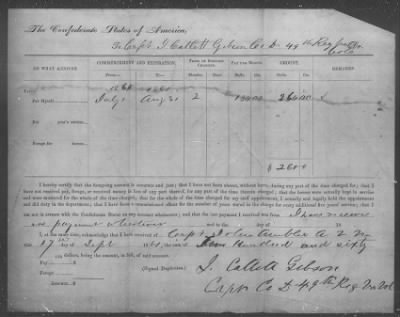 The Confederate States of America,
To Capt. J. Catlett Gibson Co D. 49th Reg
ON WHAT ACCOUNT.
COMMENCEMENT AND EXPIRATION.
TERM OF SERVICE CHARGED.
PAY PER MONTH.
AMOUNT.
REMARKS.
From—
To—
Months.
Days.
Dolls.
Cts.
Dolls.
Cts.
For myself
July 1
Aug. 31
2
130.00
260.00
For year's service,
Forage for horses
$ 260
I hereby certify that the foregoing account is accurate and just; that I have not been absent, without leave, during any part of the time charged for; that I
have not received pay, forage, or received money in lieu of any part thereof, for any part of the time therein charged; that the horses were actually kept in service
and were mustered for the whole of the time charged; that for the whole of the time charged for my staff appointment, I actually and legally held the appointment
and did duty in the department; that I have been a commissioned officer for the number of years stated in the charge for every additional five years' service; that I
am not in arrears with the Confederate States on any account whatsoever; and that the last payment I received was from
and to the
I, at the same time, acknowledge that I have received of
17 Sept
Two Hundred and sixty
dollars, being the amount, in full, of said account.
Pay
Forage
Amount
(Signed Duplicates.)
J. Catlett Gibson
Capt. Co D 49th Reg Va Vol